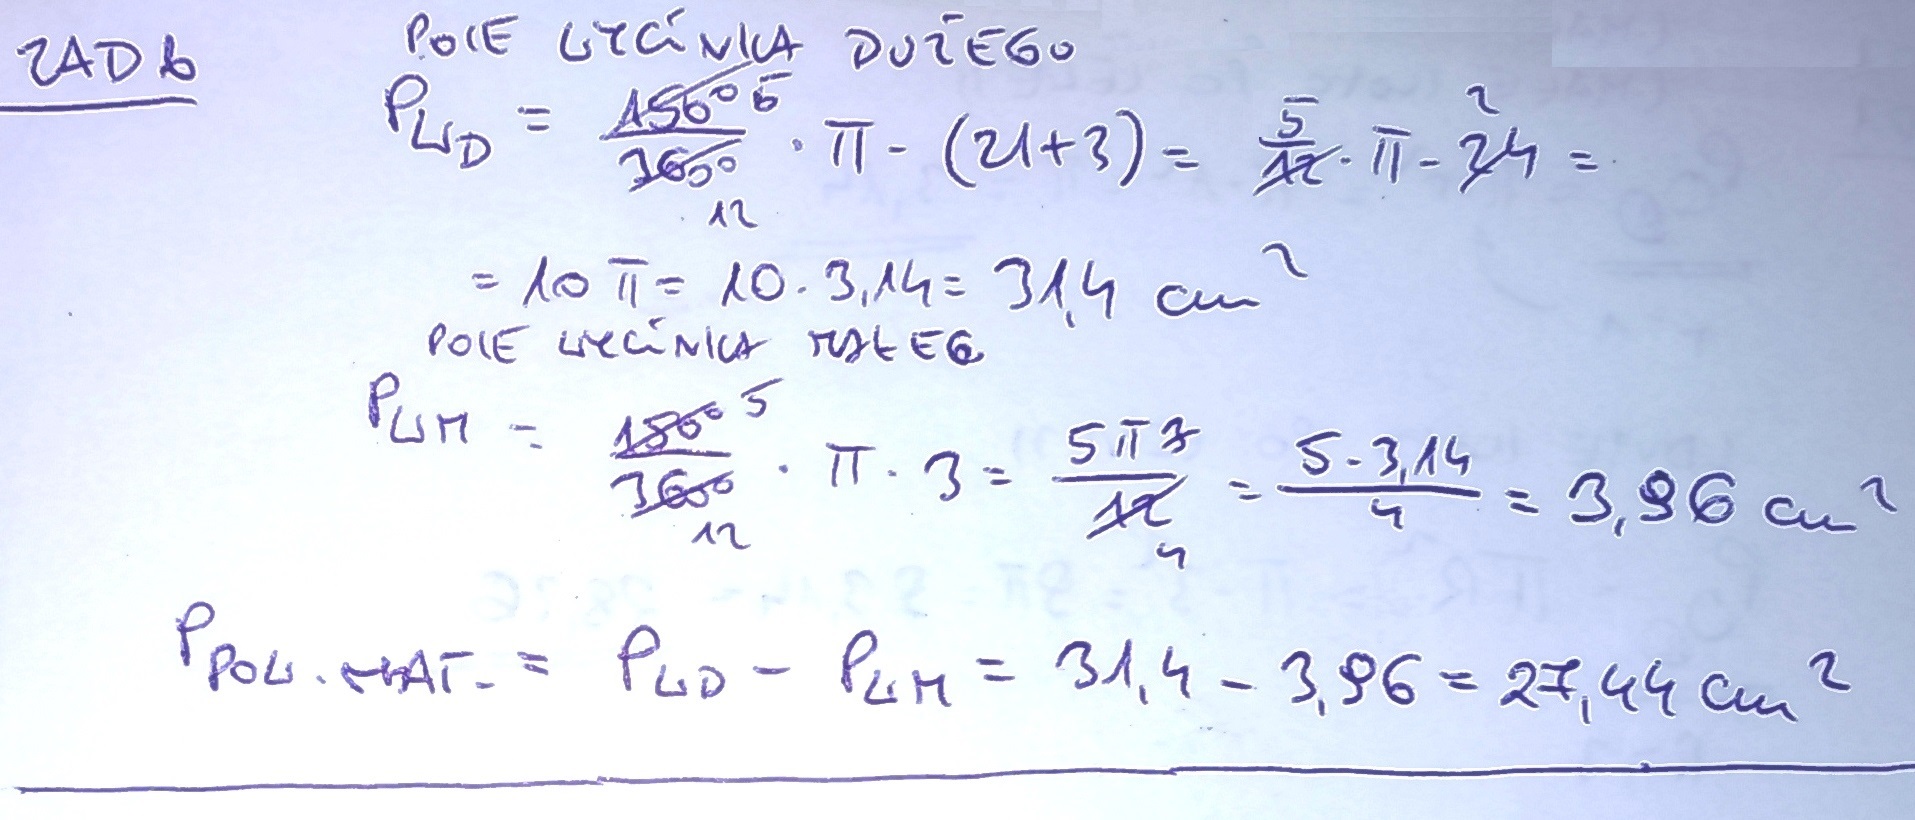 ZAD 6
POLE WYCINKA DUŻEGO
P_WD = 150° 5 / 360° 12 · π · (21+3) = 5/12 · π · 24 2 =
= 10 π = 10 · 3,14 = 31,4 cm²
POLE WYCINKA MAŁEGO
P_WM = 150° 5 / 360° 12 · π · 3 = 5π3 / 12 4 = 5 · 3,14 / 4 = 3,96 cm²
P_POW. MAT. = P_WD - P_WM = 31,4 - 3,96 = 27,44 cm²